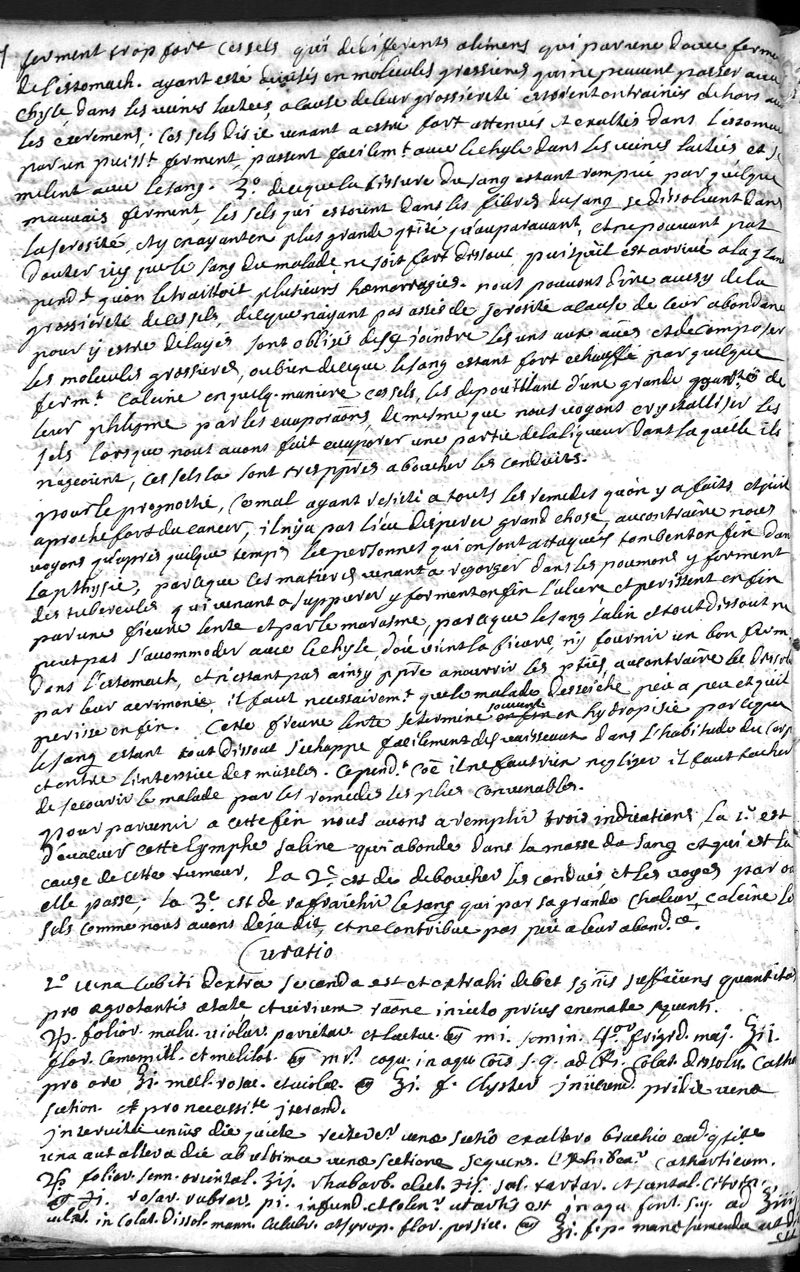 ferment trop fort ces sels qui de differents alimens qui par une douce ferme
de l'estomach. ayant esté divisés en molecules grossieres qui ne peuvent passer avec
chyle dans les veines lactées, a cause de leur grossiereté estoient entrainés dehors av
les excremens; ces sels dis ie venant a estre fort attenués et exaltés dans l'estomac
par un puisst ferment, passent facilemt avec le chyle dans les veines lactées et se
melent avec le sang. 3o. de ce que la tissure du sang estant rompue par quelque
mauvais ferment, les sels qui estoient dans les fibres du sang se dissolvent dans
la serosité, et y en ayant en plus grande qtité qu'auparavant, et ne pouvant pas
douter icy que le sang du malade ne soit fort dissout, puisqu'il est arrivé a la
pendt qu'on le traittoit plusieurs hæmorragies. nous pouvons dire aussy de la
grossiereté de ces sels, de ce que n'ayant pas assés de serosité a cause de leur abondance
pour y estre delayés sont obligés de se joindre les uns aux aües et de composer
les molecules grossieres, ou bien de ce que le sang estant fort echauffé par quelque
fermt calcine en quelq. maniere ces sels, les depouillant d'une grande quantité de
leur phlegme par les evaporaõns, de mesme que nous voyons crystalliser les
sels lorsque nous avons fait evaporer une partie de la liqueur dans laquelle ils
nageoient, ces sels la sont tres ppres a boucher les conduits.
pour le prognostic, ce mal ayant resisté a touts les remedes qu'on y a faits et puis
aproche fort du cancer, il n'y a pas lieu d'esperer grand chose, au contraire nous
voyons qu'apres quelque temps les personnes qui en sont attaquées tombent en fin dan
la pthysie, parceque ces matieres venant a regorger dans les poumons y forment
des tubercules qui venant a suppurer y forment en fin l'ulcere et perissent en fin
par une fievre lente et par le marasme, parceque le sang salin et tout dissout ne
peut pas s'accommoder avec le chyle, d'où vient la fievre, n'y fournir un bon ferm
dans l'estomach, et n'estant pas ainsy ppre a nourrir les pties au contraire les dissolv
par leur acrimonie, il faut necessairemt que le malade desseiche peu a peu et qu'il
perisse en fin. Cette fievre lente se termine souvent en hydropisie parceque
le sang estant tout dissout s'echappe facilement des vaisseaux dans l'habitude du corps
et entre l'interstice des muscles. Cependt. coe il ne faut rien negliger il faut tacher
de secourir le malade par les remedes les plus convenables.
pour parvenir a cette fin nous avons a remplir trois indications la 1e est
d'evacuer cette lymphe saline qui abonde dans la masse du sang et qui est la
cause de cette tumeur. La 2e. est de deboucher les conduis et les voyes par ou
elle passe; la 3e. est de rafraichir le sang qui par sa grande chaleur calcine les
sels comme nous avons deja dit, et ne contribue pas peu a leur abondce.
Curatio
2o vena cubiti dextra secanda est et extrahi debet sgnis sufficiens quantitas
pro ægrotantis ætate, et virium raõne iniecto prius enemate sequenti.
♃. folior. malv. violar. parietar. et lactuc. añ m i. semin. 4or frigid. maj. ℥ii.
flor. camomill. et melilot. añ m s. coqu. in aqu. cois s. q. ad ℔i. colat. dissolv. cathol
pro ore ℥i. mell. rosac. et violac. añ ℥i. f. clyster iniiciend. pridie venæ
section. et pro necessite iterand.
intervallo unius diei quiete reiteretr. venæ sectio ex altero brachio ead. qtite
una aut altera die ab ultima venæ sectione sequens. exhibeatr catharticum.
♃. folior. senn. oriental. ʒii. rhabarb. elect. ʒi s. sal. tartar. et santal. citrin.
añ ʒi. rosar. rubrar. p i. infund. et colentr ut artis est in aqu. font. s. q. ad ℥iiij
in colat. dissol. mann. calabr. et syrop. flor. persic. añ ℥i. f. p. mane sumenda